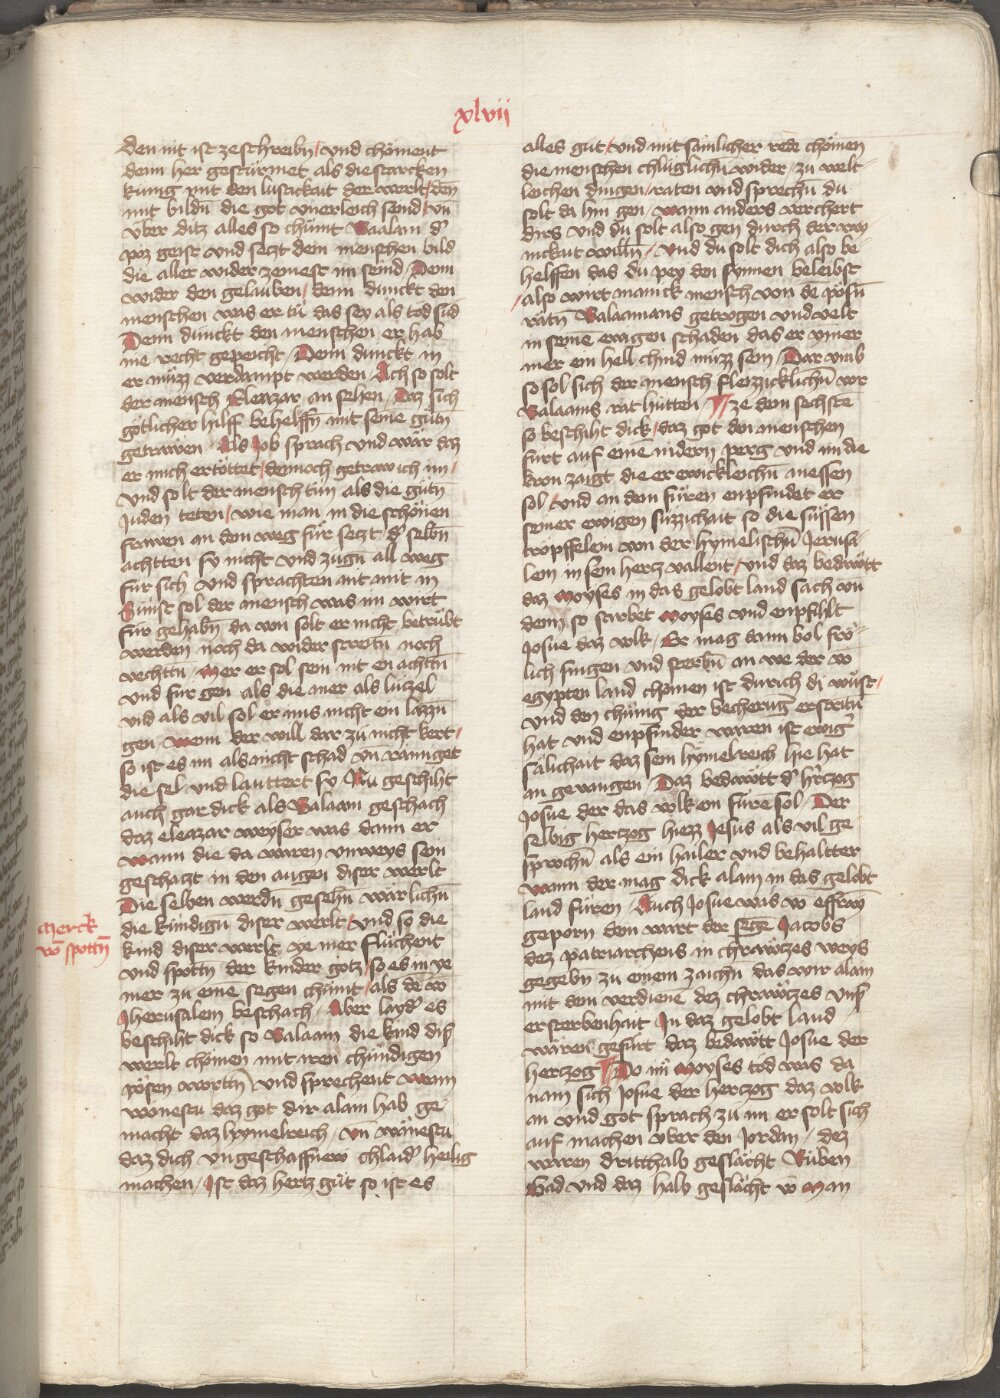 xlvii
den nit ist zeschreibn / vnd chöment
denn her gestürmet als die starcken
künig mit den lustickait der werlt / den
mit bildn die got vnerleich send / vn̄
vber ditz alles so chümt Balaam d'
pöz geist vnd setzt dem menschen bild
die aller wider zemest im seind / Dem
wider den gelauben / denn dunckt den
menschen was er tü das sey als tod sud
Denn dunckt den menschen er hab
nie recht gepeicht / Denn dunckt in
er müzz verdampt werden / Ach so solt
der mensch Eleazar an sehen / Daz sich
götlicher hilff behelffn̄ mit seine gütn̄
getrawen / Als Job sprach vnd wär daz
er mich ertöttet / dennoch getraw ich im /
vnd solt der mensch tün als die gütn̄
Juden teten / wie man in die schönen
frawen an dem weg für setzt d' selbn̄
achtten sy nicht vnd zugn̄ all weg
für sich vnd sprachten nit mit in
Sünst sol der mensch was im wirt
für gehabn̄ da von solt er nicht betrübt
werden noch da wider streitn̄ noch
vechttn̄ / Mer er sol sein nit en achttn̄
vnd für gen als die mer als lützel
vnd als vil sol er ims nicht ein lazzn̄
gen / wenn der will dar zu nicht kert /
so ist es im als nicht schad vn̄ rainiget
die sel vnd lauttert sy / Nu geschiht
auch gar dick als Balaam geschach
daz eleazar weyser was dann er
wann die da waren vnweys sein
geschatzt in den augen diser werlt
Die selben werdn̄ gesehn̄ wärlichn̄
die kündign̄ diser werlt / vnd so die
kind diser werlt ye mer flüchent
vnd spottn̄ der kinder gotz / so es in ye
mer zu eine segen chümt / als dē vō
Jherusalem beschach / Aber layd' es
beschiht dick so Balaam die kind dis'
werlt chömen mit iren chündigen
pösen wortn̄ / vnd sprechent wenn
wönestu daz got dir alain hab ge
macht daz hymelreich / vn̄ wänestu
daz dich vngeschaffnew chlaid' heilig
machen / Ist daz hertz güt so ist es
Merck
vō spottn̄
alles güt / vnd mit sämlicher rede chömen
die menschen chlüglichn̄ wider / zu welt
leichen dingen / raten vnd sprechn̄ du
solt da hin gen / wann anders verchert
dirs vnd du solt also gen durch der wy
nickait willn̄ / vnd du solt dich also be
helffen das du pey den synnen beleibst
/ also wirt manick mensch von de pösn̄
rätn̄ Balaamans getrogen vnd velt
in seinē ewigen schaden das er ymer
mer ein hell chind müzz sein / Dar vmb
so sol sich der mensch fleizzicklichn̄ vor
Balaams rat hütten / ¶ ze dem sechstē
so beschiht dick / daz got den menschen
fürt auf eine nidern perg vnd im die
kron zaigt die er ewickleichn̄ niessen
sol / vnd an dem füren enpfindet er
seiner ewigen süzzichait so die süssen
tröpffelein von der hymelischn̄ Jerusa
lem in sein hertz vallent / vnd daz bedäwtt
daz Moyses in das gelobt land sach vn̄
denn so starbet Moyses vnd enpfihlt
Josue daz volk / Er mag dann wol frö
lich singen vnd sterbn̄ an we der vō
egypten land chömen ist durich di wüst /
vnd den chünig der becherūg erstritn̄
hat vnd enpfinder waren ist ewig'
sälichait daz sein hymelreich hie hat
an gevangen / Daz bedäwtt d' h'tzog
Josue der das volk en fürē sol / Der
selbig hertzog hiezz Jesus als vil ge
sprochn̄ als ein hailer vnd behaltter
wann der mag dick alain in das gelobt
land füren / Auch Josue was vō effraym
geporn dem wart der sege Jacobs
dez patriarchens in chräwtzes weys
gegebn̄ zu einem zaichn̄ das wir alain
mit dem verdienē dez chräwtzes vns'
ersterbenhait In daz gelobt land
wären gefürt daz bedäwtt Josue der
hertzog ¶ Do nū Moyses tod was da
nam sich Josue der hertzog daz volk
an vnd got sprach zu im er solt sich
auf machen vber den Jordan / dez
waren dritthalb geslächt Rüben
Gad vnd daz halb geslächt vō Man